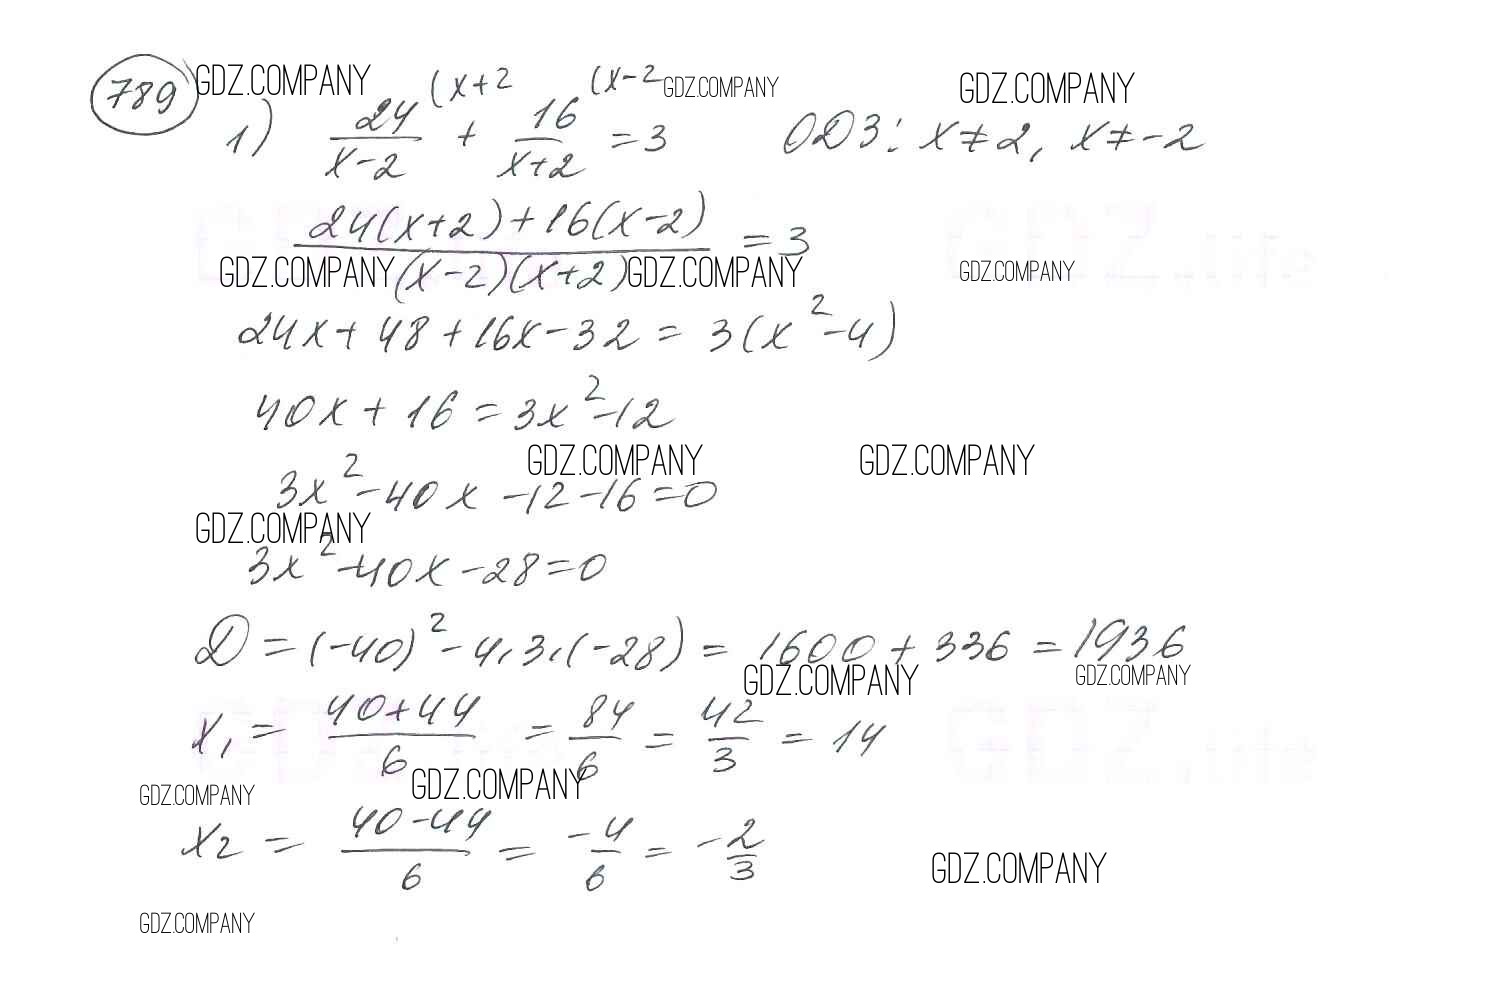 789 GDZ.COMPANY (x+2 (x-2 GDZ.COMPANY GDZ.COMPANY
1) 24/(x-2) + 16/(x+2) = 3 ОДЗ: x≠2, x≠-2
(24(x+2)+16(x-2))/((x-2)(x+2)) = 3
GDZ.COMPANY GDZ.COMPANY GDZ.COMPANY
24x+48+16x-32 = 3(x²-4)
40x+16=3x²-12
GDZ.COMPANY GDZ.COMPANY
3x²-40x-12-16=0
GDZ.COMPANY
3x²-40x-28=0
D=(-40)²-4·3·(-28) = 1600+336=1936
GDZ.COMPANY GDZ.COMPANY
x₁ = (40+44)/6 = 84/6 = 42/3 = 14
GDZ.COMPANY GDZ.COMPANY
x₂ = (40-44)/6 = -4/6 = -2/3
GDZ.COMPANY
GDZ.COMPANY